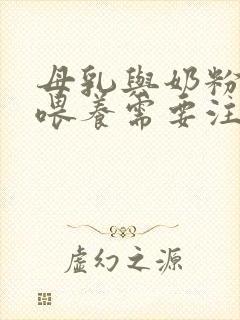 母乳與奶粉
喂養需要注
虛幻之源